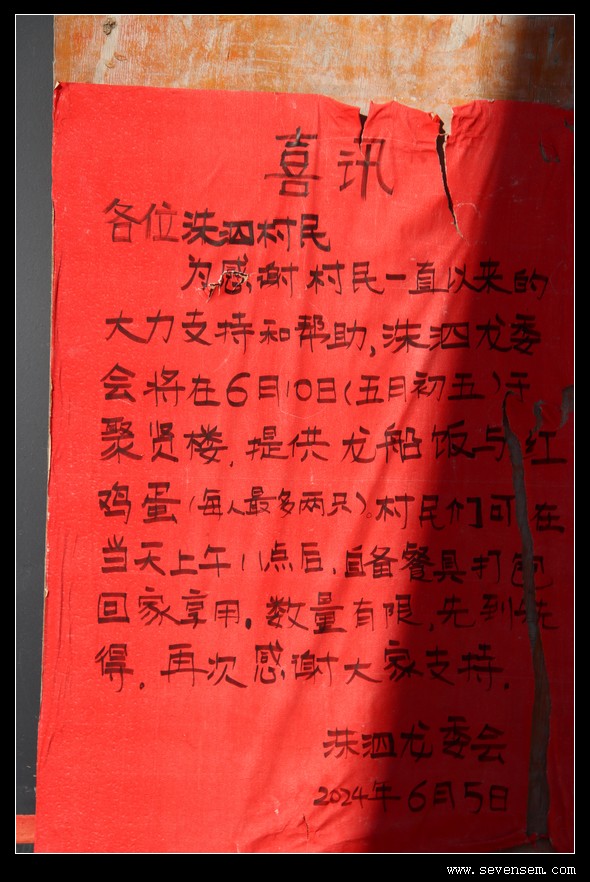 喜讯
各位洙泗村民
为感谢村民一直以来的
大力支持和帮助,洙泗龙委
会将在6月10日(五月初五)于
聚贤楼,提供龙船饭与红
鸡蛋(每人最多两只)。村民们可在
当天上午11点后,自备餐具打包
回家享用。数量有限,先到先
得。再次感谢大家支持。
洙泗龙委会
2024年6月5日
www.sevensem.com